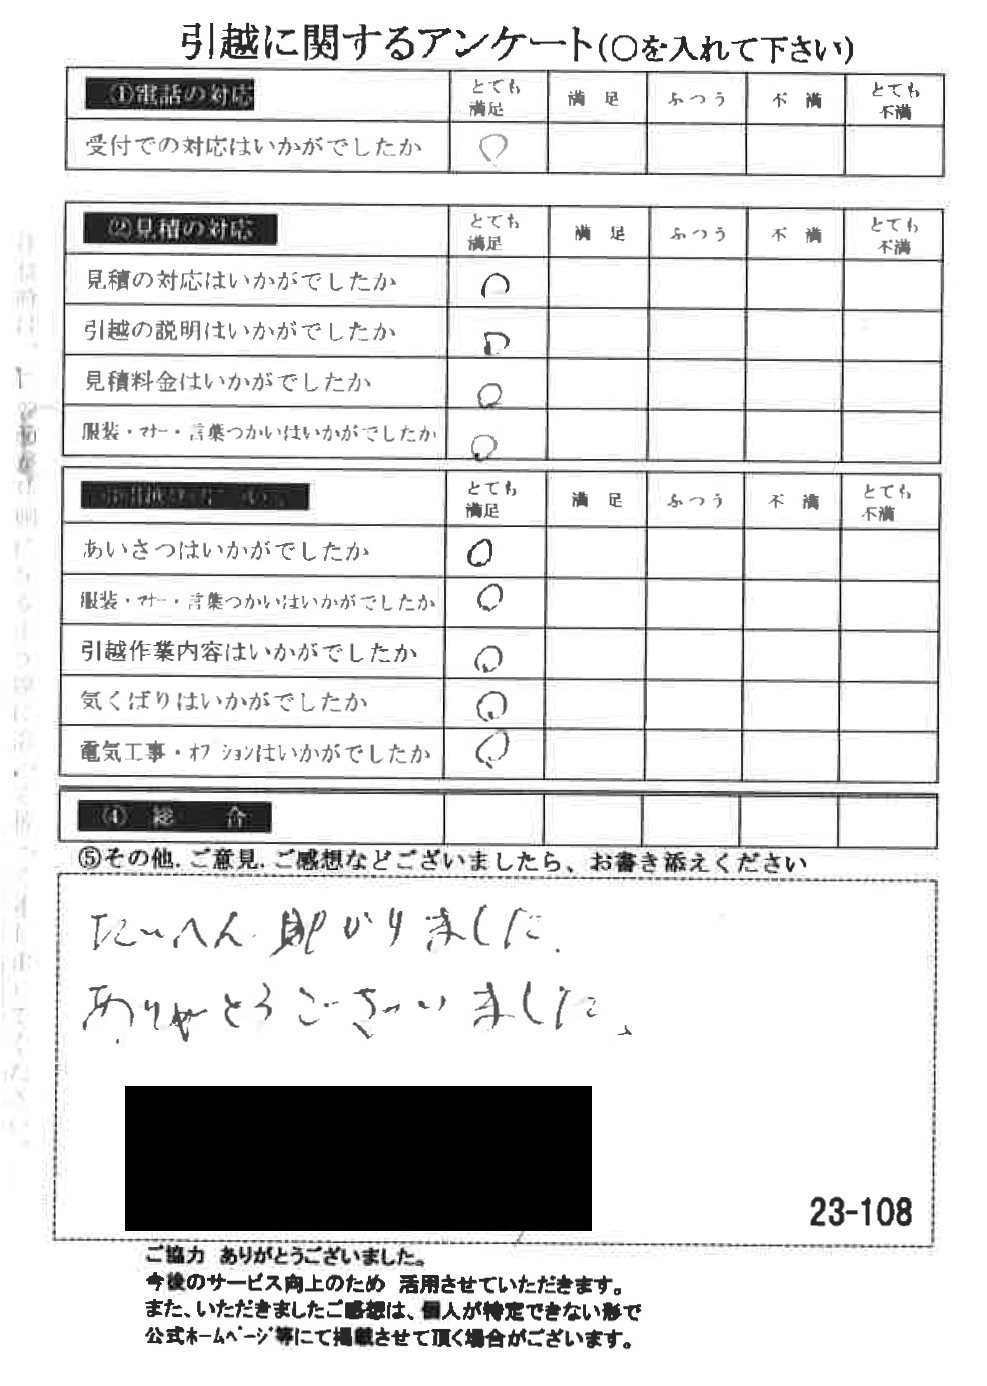 引越に関するアンケート(○を入れて下さい)
①電話の対応 とても満足 満足 ふつう 不満 とても不満
受付での対応はいかがでしたか ○
②見積の対応 とても満足 満足 ふつう 不満 とても不満
見積の対応はいかがでしたか ○
引越の説明はいかがでしたか ○
見積料金はいかがでしたか ○
服装・マナー・言葉つかいはいかがでしたか ○
とても満足 満足 ふつう 不満 とても不満
あいさつはいかがでしたか ○
服装・マナー・言葉つかいはいかがでしたか ○
引越作業内容はいかがでしたか ○
気くばりはいかがでしたか ○
電気工事・オプションはいかがでしたか ○
④総合
⑤その他.ご意見.ご感想などございましたら、お書き添えください
たいへん助かりました.
ありがとうございました、
23-108
ご協力 ありがとうございました。
今後のサービス向上のため 活用させていただきます。
また、いただきましたご感想は、個人が特定できない形で
公式ホームページ等にて掲載させて頂く場合がございます。